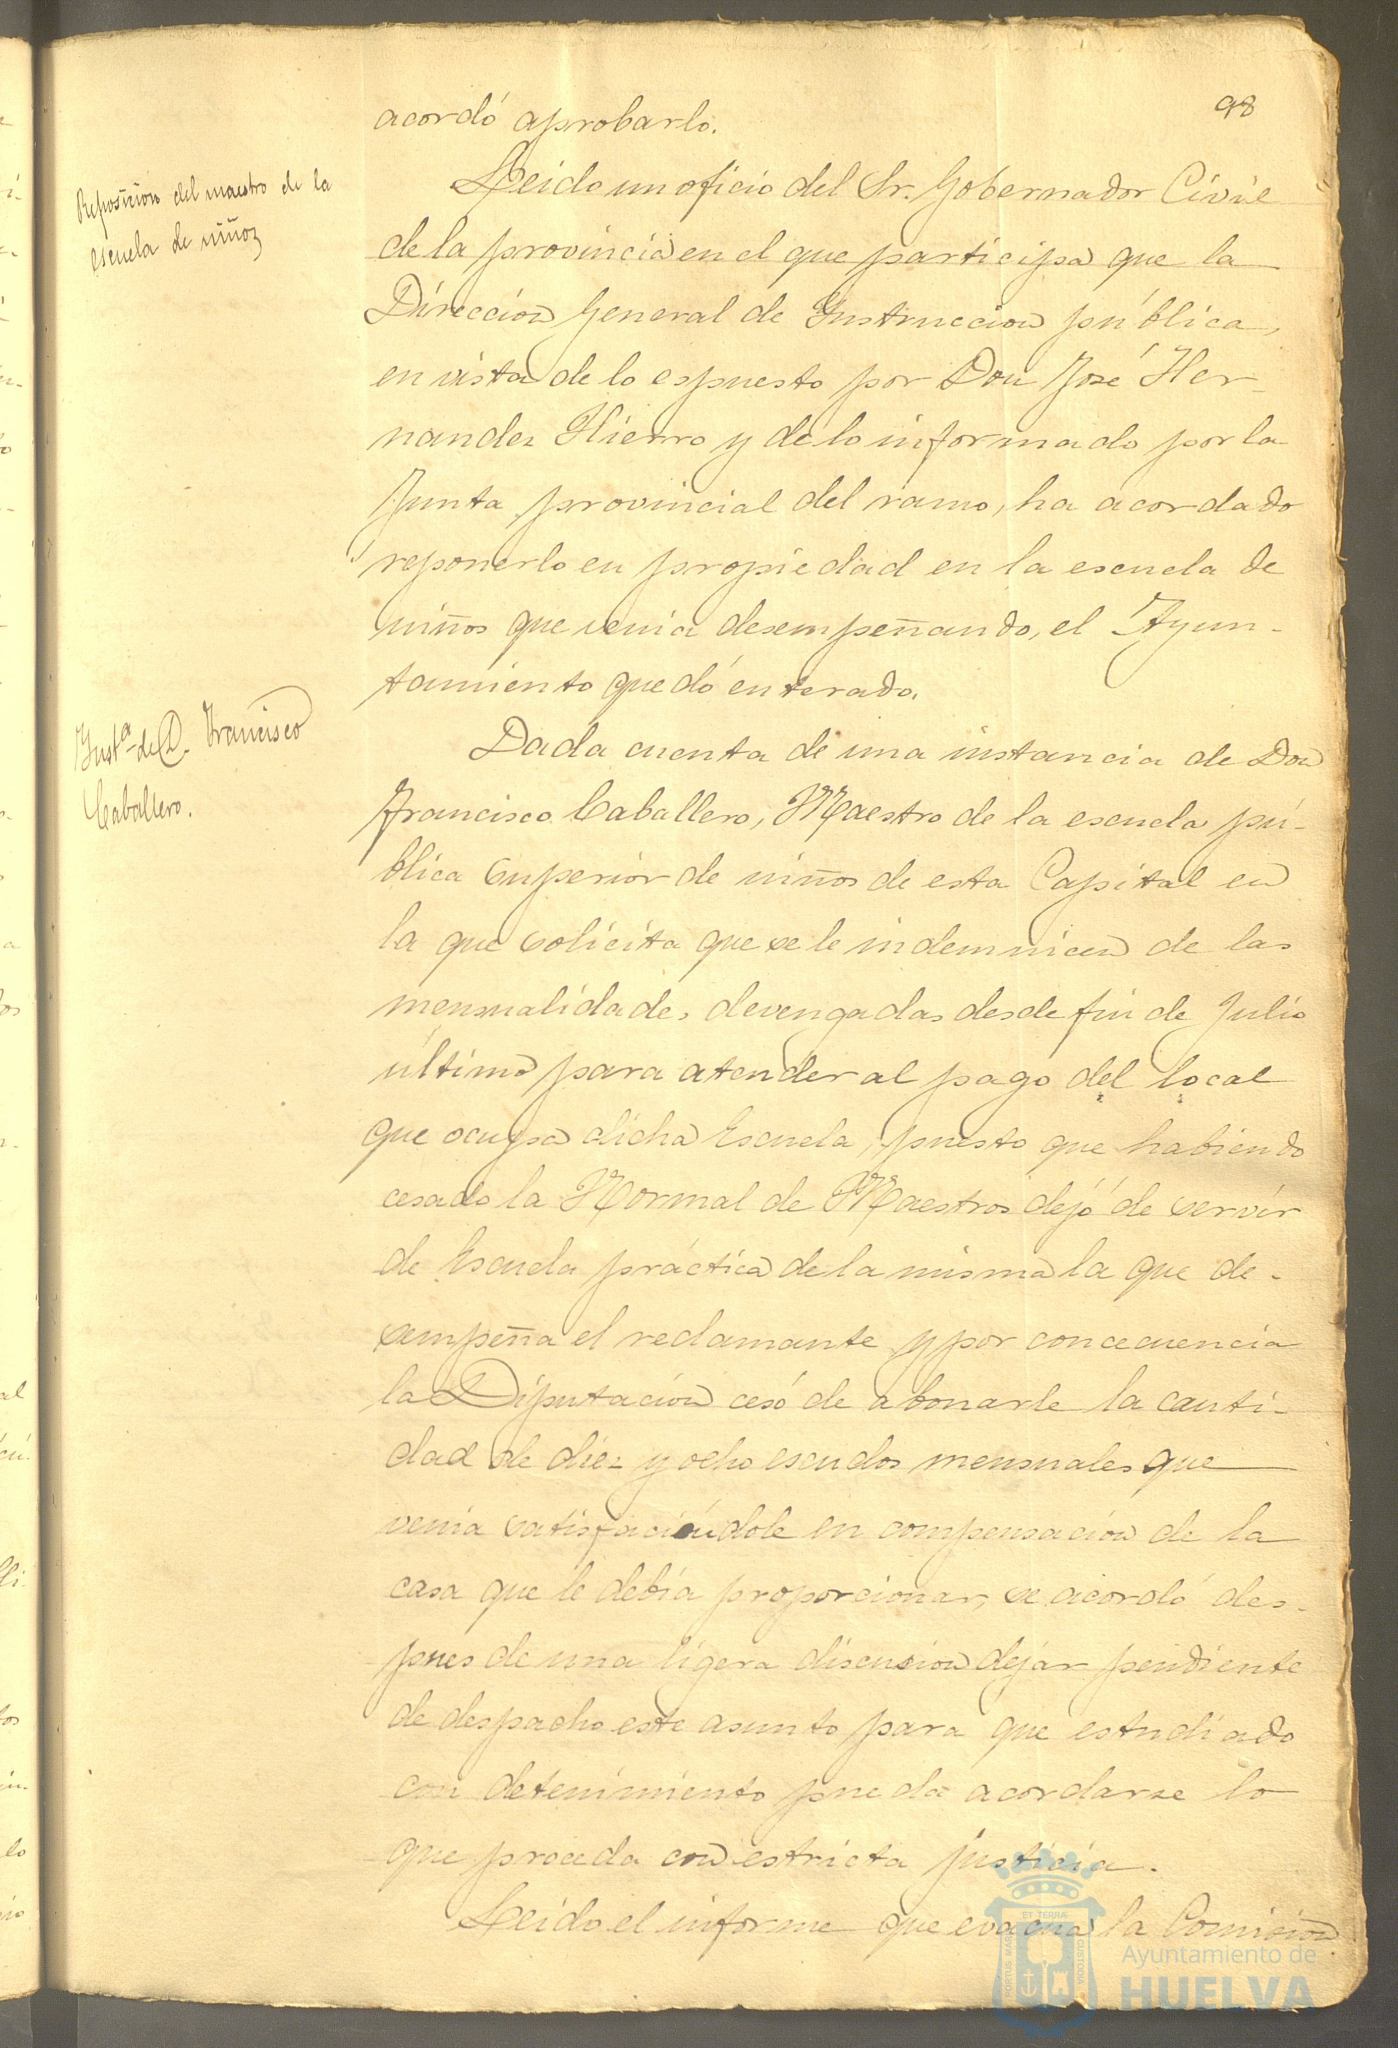 98
acordó aprobarlo.
Reposición del maestro de la
escuela de niños
Leido un oficio del Sr. Gobernador Civil
de la provincia en el que participa que la
Dirección General de Instruccion pública,
en vista de lo espuesto por Don José Her-
nandez Hierro y de lo informado por la
Junta provincial del ramo, ha acordado
reponerlo en propiedad en la escuela de
niños que venia desempeñando, el Ayun-
tamiento quedó enterado.
Inst.ª de D. Francisco
Caballero.
Dada cuenta de una instancia de Don
Francisco Caballero, Maestro de la escuela pú-
blica superior de niños de esta Capital en
la que solicita que se le indemnicen de las
mensualidades devengadas desde fin de Julio
último para atender al pago del local
que ocupa dicha Escuela, puesto que habiendo
cesado la Normal de Maestros dejó de servir
de Escuela práctica de la misma la que de-
sempeña el reclamante y por concecuencia
la Diputación cesó de abonarle la canti-
dad de diez y ocho escudos mensuales que
venía satisfaciéndole en compensación de la
casa que le debía proporcionar, se acordó des-
pues de una ligera discusion dejar pendiente
de despacho este asunto para que estudiado
con detenimiento pueda acordarse lo
que proceda con estricta justicia.
Leido el informe que evacua la Comisión
PORTUS MARIS
ET TERRÆ
CUSTODIA
Ayuntamiento de
HUELVA